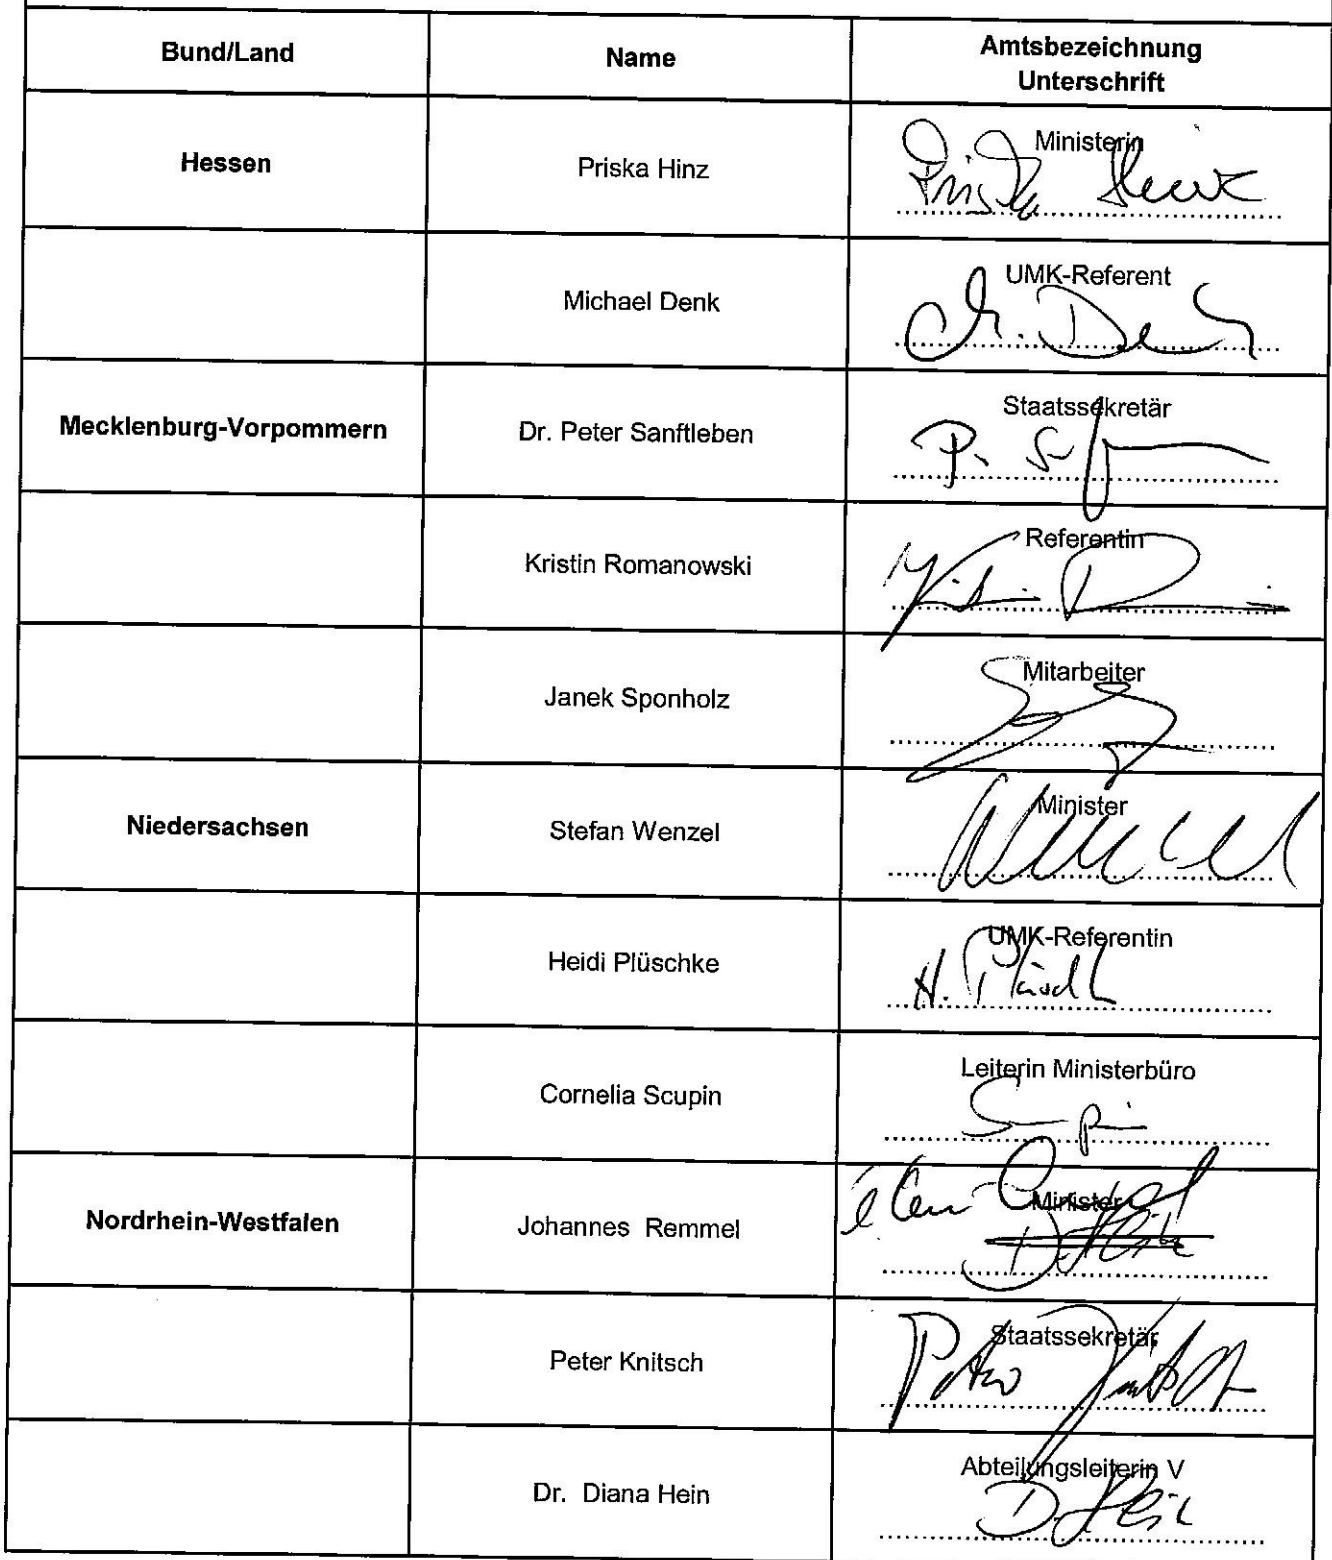 Bund/Land Name Amtsbezeichnung
Unterschrift
Hessen Priska Hinz Ministerin
Priska Hinz
Michael Denk UMK-Referent
M. Denk
Mecklenburg-Vorpommern Dr. Peter Sanftleben Staatssekretär
Kristin Romanowski Referentin
Janek Sponholz Mitarbeiter
Niedersachsen Stefan Wenzel Minister
Wenzel
Heidi Plüschke UMK-Referentin
Cornelia Scupin Leiterin Ministerbüro
Nordrhein-Westfalen Johannes Remmel Minister
D. Hein
Peter Knitsch Staatssekretär
Peter Knitsch
Dr. Diana Hein Abteilungsleiterin V
D. Hein